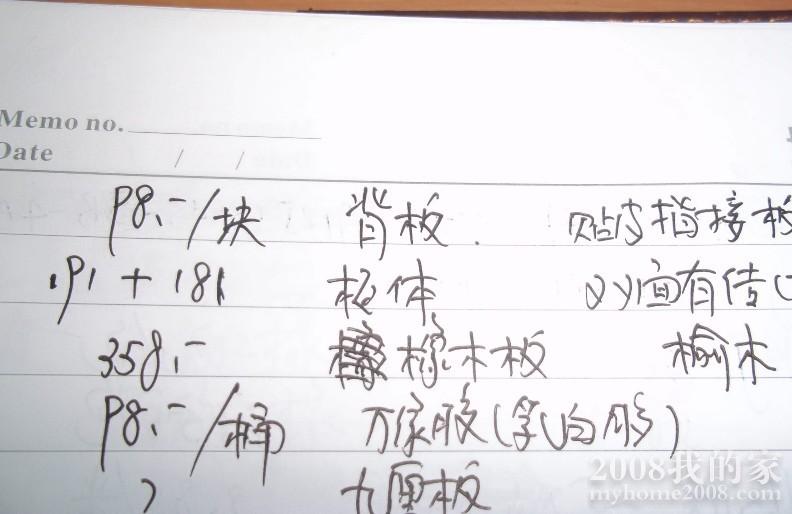 Memo no.
Date / /
98.-/块 背板. 贴皮指接板
191 + 181 柜体 面有传
358.- 木板 榆木
98.-/桶 万家胶(乳白胶)
九厘板
2008我的家
myhome2008.com